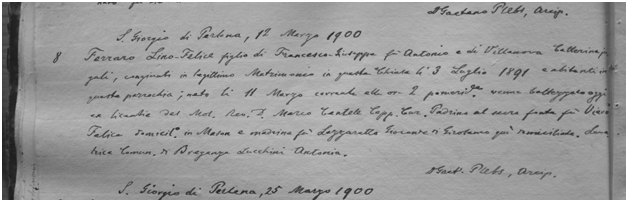 D Gaetano Plebs, Arcip.
S. Giorgio di Perlena, 12 Marzo 1900
8 Ferraro Lino-Felice figlio di Francesco-Giuseppe fu Antonio e di Villanova Catterina
gali, congiunti in legittimo Matrimonio in questa Chiesa li 3 Luglio 1891 e abitanti in
questa parrocchia; nato li 11 Marzo corrente alle ore 2 pomerid.e venne battezzato oggi
con licenza dal Mol. Rev. D. Marco Capp. Cur. Padrino al sacro fonte fu
Felice domicil. in Mason e madrina fu Lazzaretto Giovanna di Girolamo qui domiciliata.
trice Comun. di Breganze Lucchini Antonia.
D Gaet. Plebs, Arcip.
S. Giorgio di Perlena, 25 Marzo 1900